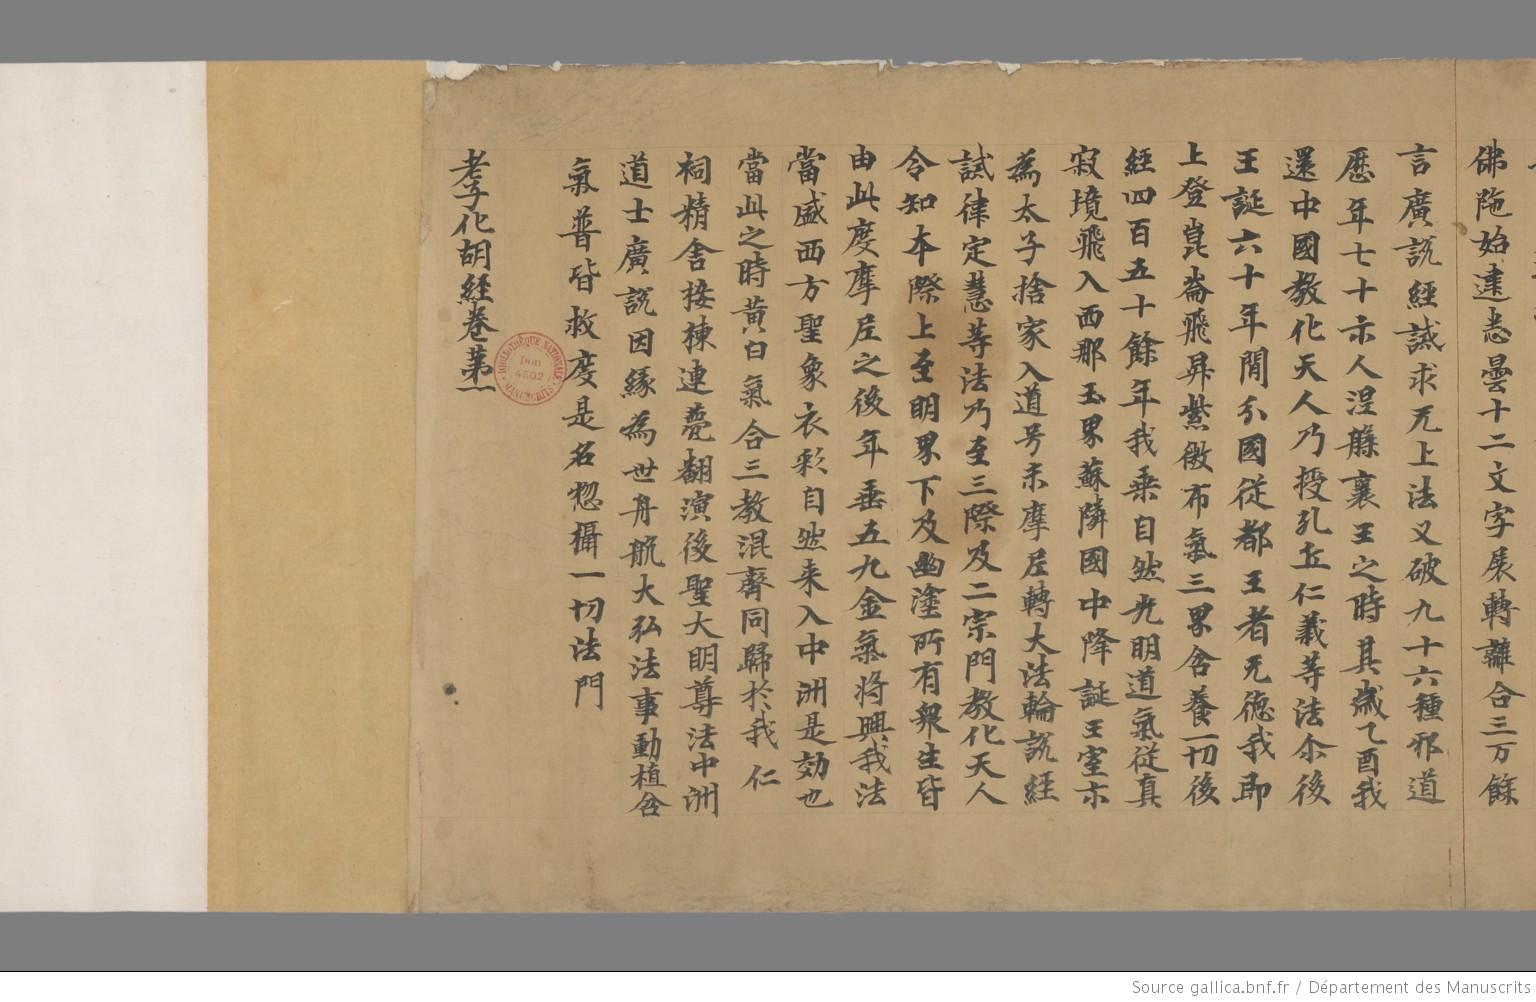 佛陁始建悉曇十二文字展轉離合三万餘
言廣說經誡求无上法又破九十六種邪道
歷年七十示人涅槃襄王之時其歲乙酉我
還中國教化天人乃授孔丘仁義等法尒後
王誕六十年間分國從都王者无德我即
上登崑崙飛昇紫微布氣三界含養一切後
經四百五十餘年我乘自然光明道氣從真
寂境飛入西那玉界蘇隣國中降誕王室示
為太子捨家入道号末摩尼轉大法輪說經
試律定慧等法乃至三際及二宗門教化天人
令知本際上至明界下及幽塗所有衆生皆
由此度摩尼之後年垂五九金氣將興我法
當盛西方聖象衣彩自然来入中洲是効也
當此之時黃白氣合三教混齊同歸於我仁
祠精舍接棟連甍翻演後聖大明尊法中洲
道士廣說因緣為世舟航大弘法事動植含
氣普皆救度是名惣攝一切法門
老子化胡經卷第一
BIBLIOTHÈQUE NATIONALE
Don
4502
MANUSCRITS
Source gallica.bnf.fr / Département des Manuscrits